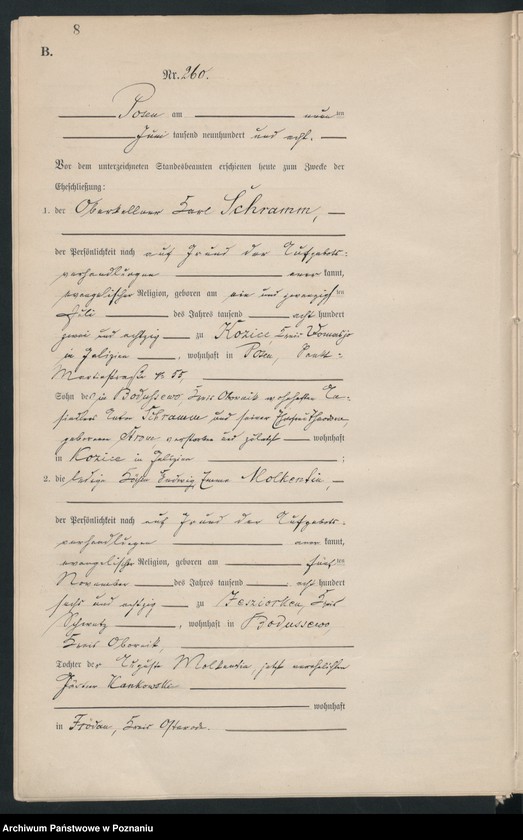 8
B.
Nr. 260.
Posen am neun ten
Juni tausend neunhundert und acht.
Vor dem unterzeichneten Standesbeamten erschienen heute zum Zwecke der
Eheschließung:
1. der Oberkellner Karl Schramm,
der Persönlichkeit nach auf Grund der Aufgebots-
verhandlungen aner kannt,
evangelischer Religion, geboren am ein und zwanzigsten
Juli des Jahres tausend acht hundert
zwei und achtzig zu Kozice Kreis
in Galizien, wohnhaft in Posen, Sankt-
Martinstraße № 55,
Sohn des in Boduszewo, Kreis Obornik wohnhaften An-
siedlers Anton Schramm und seiner Ehefrau
geborenen verstorben und zuletzt wohnhaft
in Kozice in Galizien;
2. die ledige Ludwig Emma Molkentin,
der Persönlichkeit nach auf Grund der Aufgebots-
verhandlungen aner kannt,
evangelischer Religion, geboren am fünf ten
November des Jahres tausend acht hundert
sechs und achtzig zu Jeziorken, Kreis
Schwetz, wohnhaft in Boduszewo,
Kreis Obornik,
Tochter der Auguste Molkentin, jetzt verehelichten
Kankowski
wohnhaft
in Frödau, Kreis Osterode.
Archiwum Państwowe w Poznaniu